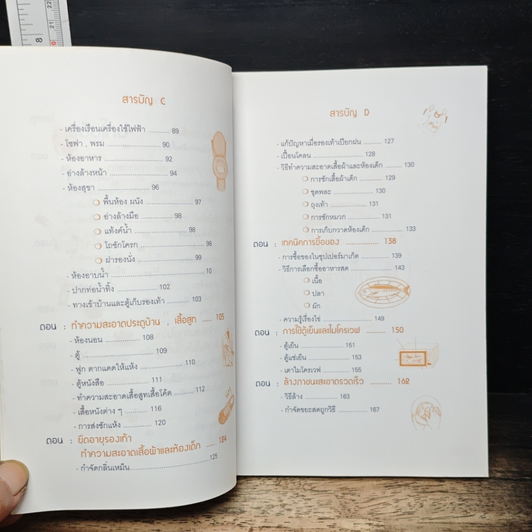 สารบัญ C
- เครื่องเรือนเครื่องใช้ไฟฟ้า ....... 89
- โซฟา , พรม ....... 90
- ห้องอาหาร ....... 92
- อ่างล้างหน้า ....... 94
- ห้องสุขา ....... 96
พื้นห้อง ผนัง ....... 97
อ่างล้างมือ ....... 98
แท้งค์น้ำ ....... 98
โถชักโครก ....... 98
ฝารองนั่ง ....... 99
- ห้องอาบน้ำ ....... 10
- ปากท่อน้ำทิ้ง ....... 102
- ทางเข้าบ้านและตู้เก็บรองเท้า ....... 103
ตอน : ทำความสะอาดประตูบ้าน , เสื้อสูท ..... 105
- ห้องนอน ....... 108
- ตู้ ....... 109
- ฟูก ตากแดดให้แห้ง ....... 110
- ตู้หนังสือ ....... 111
- ทำความสะอาดเสื้อสูทเสื้อโค้ต ....... 112
- เสื้อหนังต่าง ๆ ....... 116
- การส่งซักแห้ง ....... 120
ตอน : ยืดอายุรองเท้า
ทำความสะอาดเสื้อผ้าและห้องเด็ก ..... 124
- กำจัดกลิ่นเหม็น ....... 125
สารบัญ D
- แก้ปัญหาเมื่อรองเท้าเปียกฝน ....... 127
- เปื้อนโคลน ....... 128
- วิธีทำความสะอาดเสื้อผ้าและห้องเด็ก ....... 130
การซักเสื้อผ้าเด็ก ....... 129
ชุดพละ ....... 130
ถุงเท้า ....... 131
การซักหมวก ....... 131
การเก็บกวาดห้องเด็ก ....... 133
ตอน : เทคนิคการซื้อของ ....... 138
- การซื้อของในซุปเปอร์มาเก็ต ....... 139
- วิธีการเลือกซื้ออาหารสด ....... 143
เนื้อ
ปลา
ผัก
- ความรู้เรื่องไข่ ....... 149
ตอน : การใช้ตู้เย็นและไมโครเวฟ ....... 150
- ตู้เย็น ....... 151
- ตู้แช่เย็น ....... 155
- เตาไมโครเวฟ ....... 157
ตอน : ล้างภาชนะสะอาดรวดเร็ว ....... 162
- วิธีล้าง ....... 163
- กำจัดขยะสดถูกวิธี ....... 167